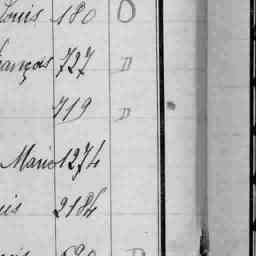 Louis 180 D
François 727 D
719 D
Marie 1274
2184